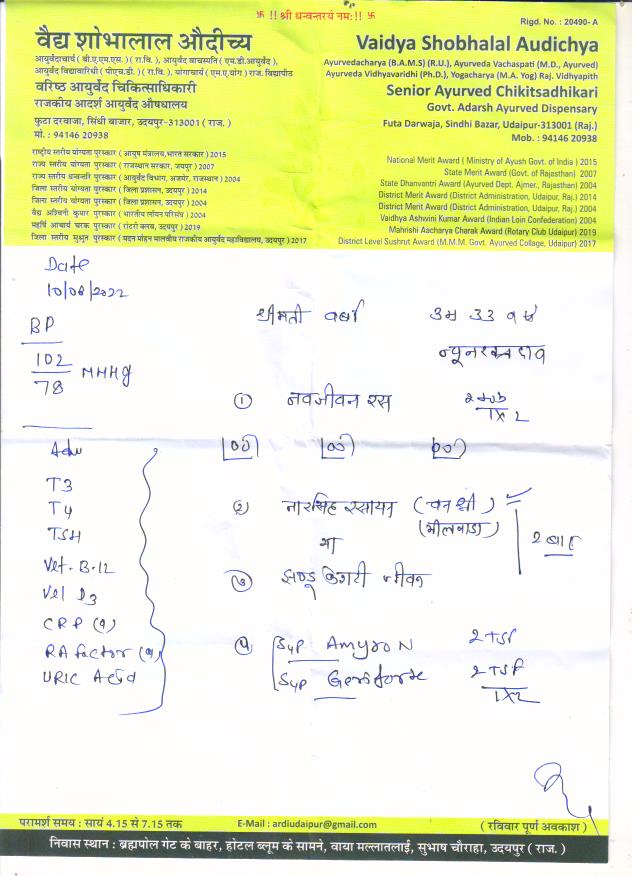 卐 !! श्री धन्वन्तरये नमः!! 卐
Rigd. No. : 20490- A
वैद्य शोभालाल औदीच्य
आयुर्वेदाचार्य ( बी.ए.एम.एस. ) ( रा.वि. ), आयुर्वेद वाचस्पति ( एम.डी.आयुर्वेद ),
आयुर्वेद विद्यावारिधी ( पीएच.डी. ) ( रा.वि. ), योगाचार्य ( एम.ए.योग ) राज. विद्यापीठ
वरिष्ठ आयुर्वेद चिकित्साधिकारी
राजकीय आदर्श आयुर्वेद औषधालय
फुटा दरवाजा, सिंधी बाजार, उदयपुर-313001 ( राज. )
मो. : 94146 20938
राष्ट्रीय स्तरीय योग्यता पुरस्कार ( आयुष मंत्रालय,भारत सरकार ) 2015
राज्य स्तरीय योग्यता पुरस्कार ( राजस्थान सरकार, जयपुर ) 2007
राज्य स्तरीय धन्वन्तरि पुरस्कार ( आयुर्वेद विभाग, अजमेर, राजस्थान ) 2004
जिला स्तरीय योग्यता पुरस्कार ( जिला प्रशासन, उदयपुर ) 2014
जिला स्तरीय योग्यता पुरस्कार ( जिला प्रशासन, उदयपुर ) 2004
वैद्य अश्विनी कुमार पुरस्कार ( भारतीय लॉयन परिसंघ ) 2004
महर्षि आचार्य चरक पुरस्कार ( रोटरी क्लब, उदयपुर ) 2019
जिला स्तरीय सुश्रुत पुरस्कार ( मदन मोहन मालवीय राजकीय आयुर्वेद महाविद्यालय, उदयपुर ) 2017
Vaidya Shobhalal Audichya
Ayurvedacharya (B.A.M.S) (R.U.), Ayurveda Vachaspati (M.D., Ayurved)
Ayurveda Vidhyavaridhi (Ph.D.), Yogacharya (M.A. Yog) Raj. Vidhyapith
Senior Ayurved Chikitsadhikari
Govt. Adarsh Ayurved Dispensary
Futa Darwaja, Sindhi Bazar, Udaipur-313001 (Raj.)
Mob. : 94146 20938
National Merit Award ( Ministry of Ayush Govt. of India ) 2015
State Merit Award (Govt. of Rajasthan) 2007
State Dhanvantri Award (Ayurved Dept. Ajmer., Rajasthan) 2004
District Merit Award (District Administration, Udaipur, Raj.) 2014
District Merit Award ( District Administration, Udaipur, Raj.) 2004
Vaidhya Ashwini Kumar Award (Indian Loin Confederation) 2004
Mahrishi Aacharya Charak Award (Rotary Club Udaipur) 2019
District Level Sushrut Award (M.M.M. Govt. Ayurved Collage, Udaipur) 2017
Date
10/06/2022
BP
102
78 MMHg
श्रीमती वर्षा उम्र 33 वर्ष
न्यूनरक्तदाब
① नवजीवन रस
1x2
Adv
T3
T4
TSH
Vit-B-12
Vit D3
CRP (q)
RA factor (q)
URIC Acid
② नारसिंह रसायन (वनश्री)
(भीलवाडा)
या
2 बार
③ झण्डू केशरी जीवन
④ Syp Amyron 2 TSF
Syp 2 TSF
1x2
परामर्श समय : सायं 4.15 से 7.15 तक
E-Mail : ardiudaipur@gmail.com
( रविवार पूर्ण अवकाश )
निवास स्थान : ब्रह्मपोल गेट के बाहर, होटल ब्लूम के सामने, वाया मल्लातलाई, सुभाष चौराहा, उदयपुर ( राज. )